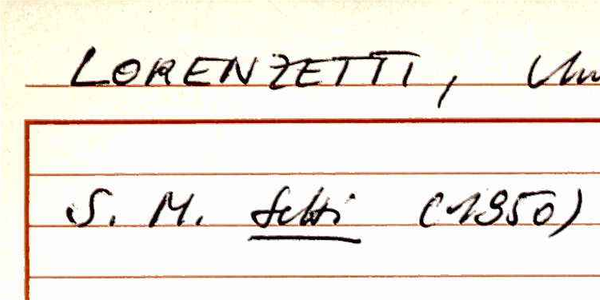 LORENZETTI,
S. M. Setti (1950)